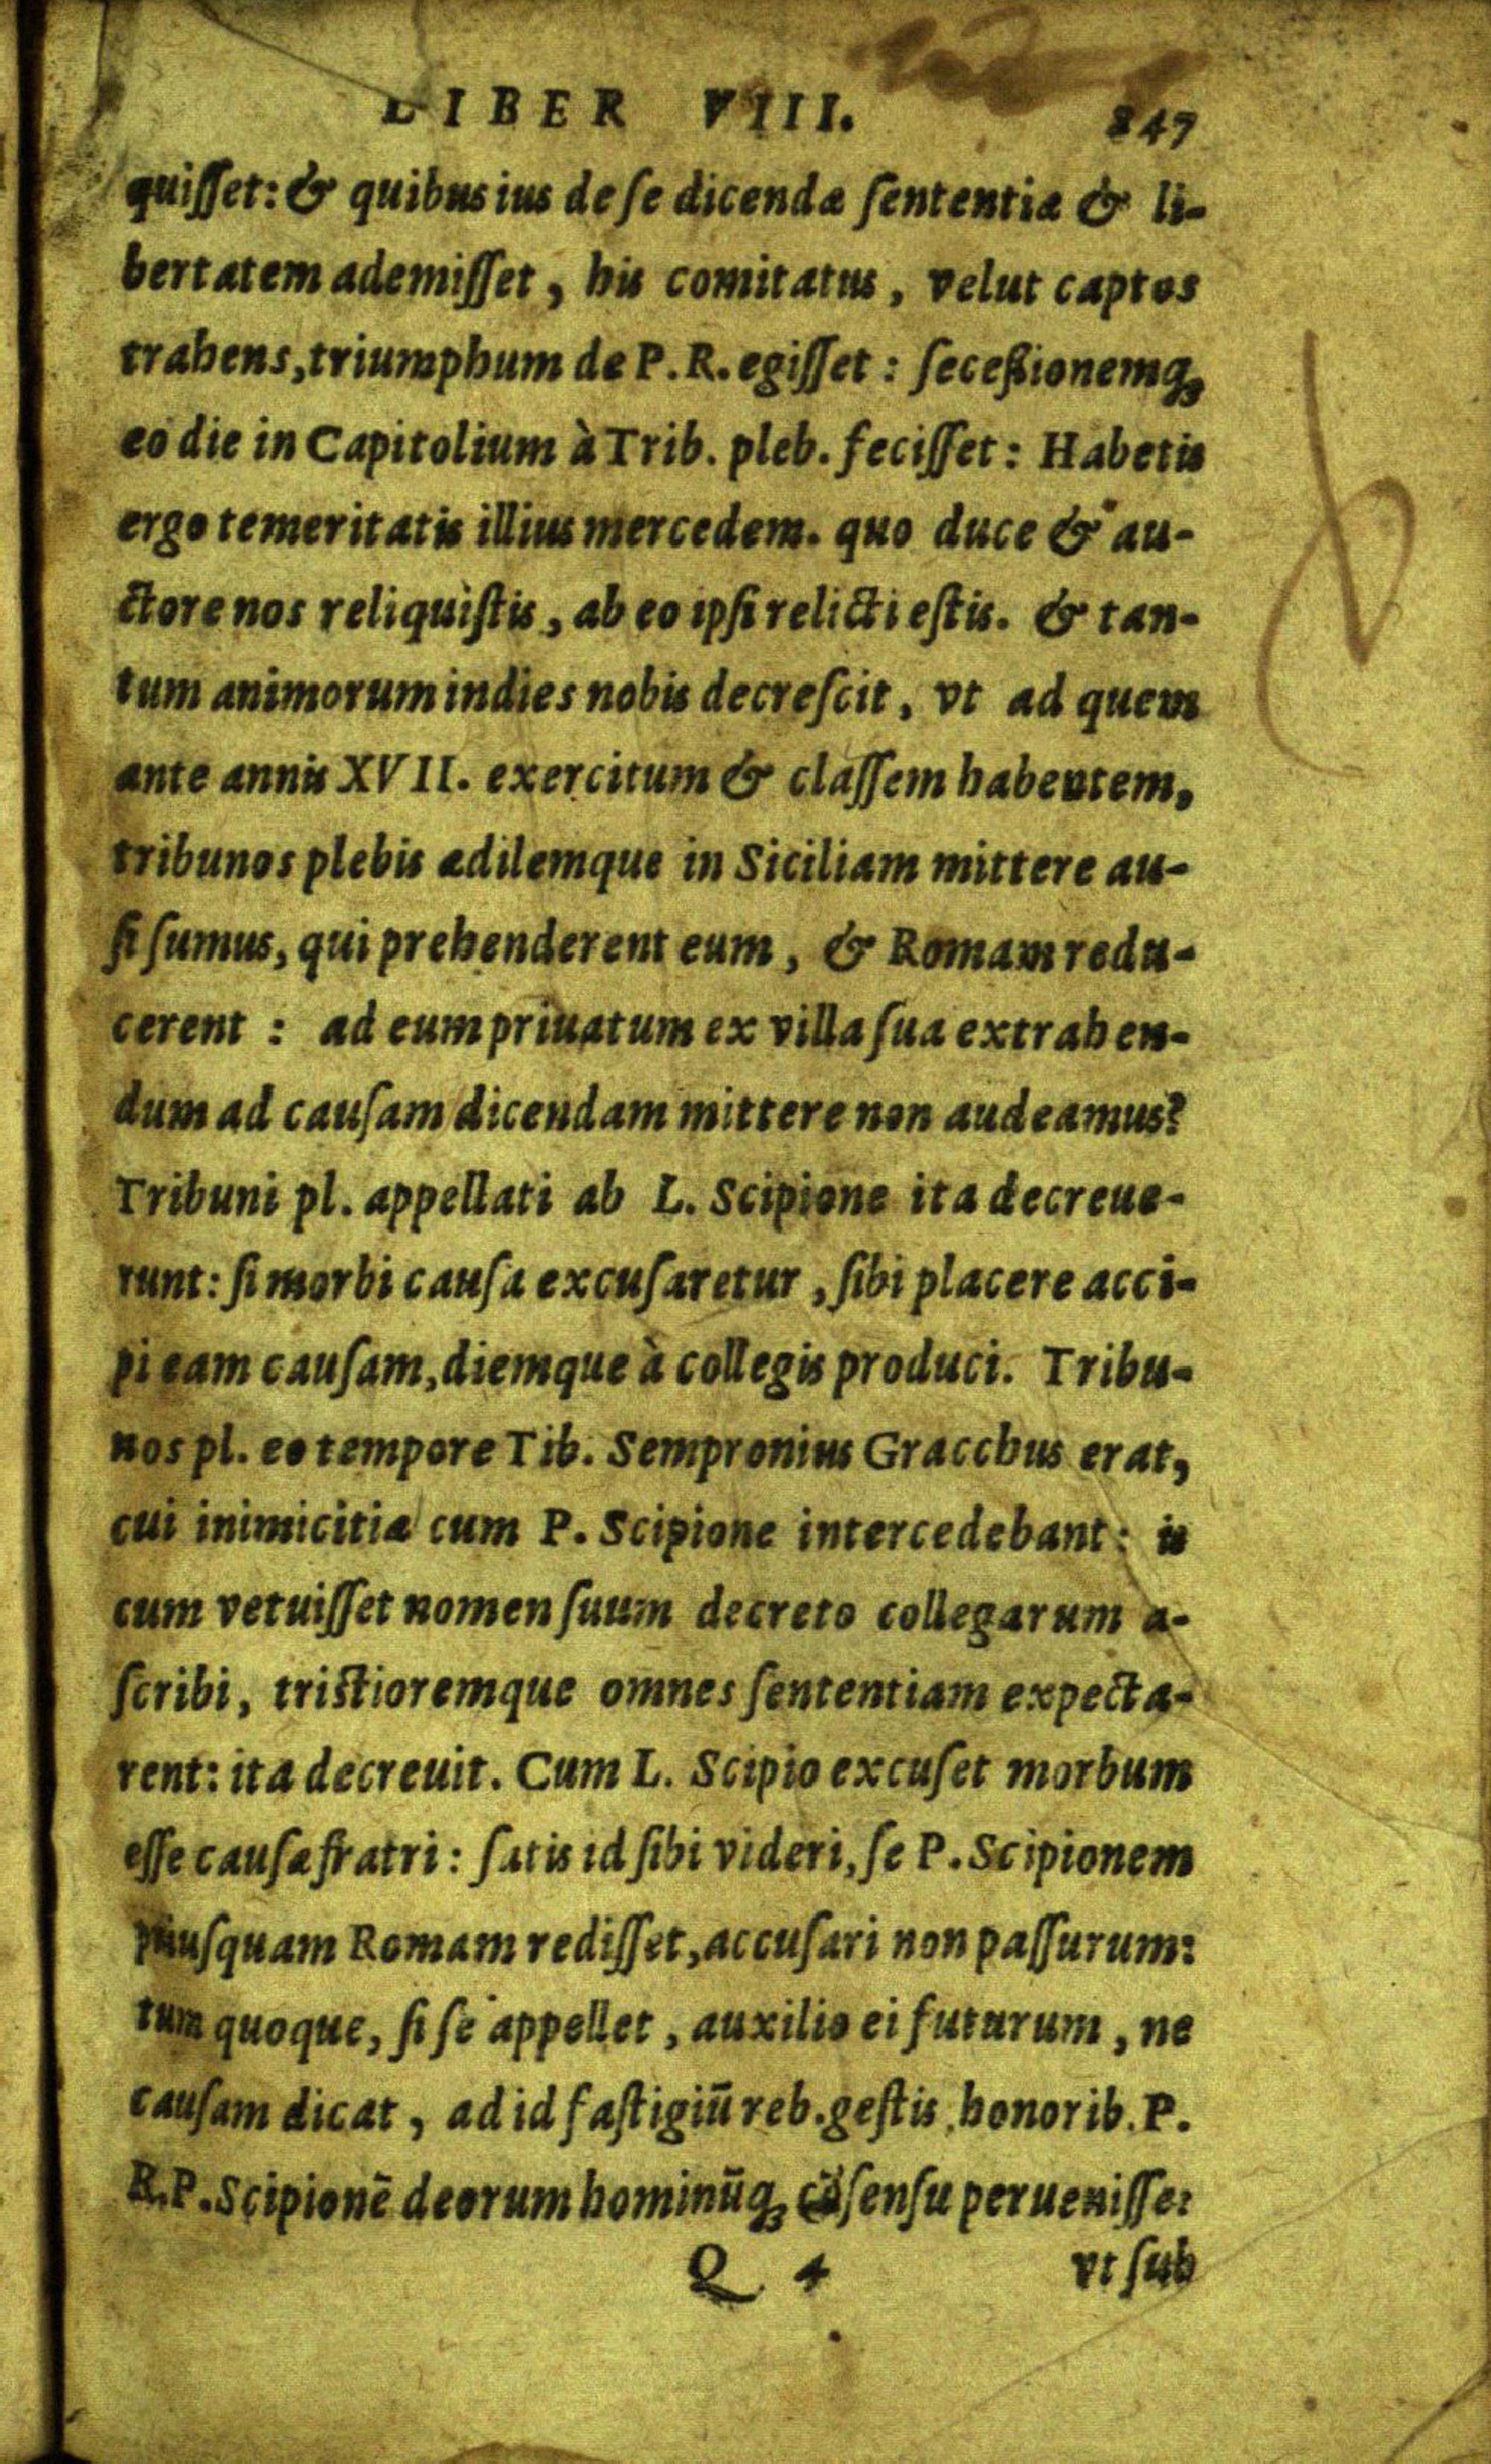 LIBER VIII. 247
quiſſet: & quibus ius de ſe dicendæ ſententiæ & li-
bertatem ademiſſet, his comitatus, velut captos
trahens, triumphum de P.R. egiſſet: ſeceßionemq́;
eo die in Capitolium à Trib. pleb. feciſſet: Habetis
ergo temeritatis illius mercedem. quo duce & au-
ctore nos reliquiſtis, ab eo ipſi relicti eſtis. & tan-
tum animorum indies nobis decreſcit, vt ad quem
ante annis XVII. exercitum & claſſem habentem,
tribunos plebis ædilemque in Siciliam mittere au-
ſi ſumus, qui prehenderent eum, & Romam redu-
cerent: ad eum priuatum ex villa ſua extrahen-
dum ad cauſam dicendam mittere non audeamus?
Tribuni pl. appellati ab L. Scipione ita decreue-
runt: ſi morbi cauſa excuſaretur, ſibi placere acci-
pi eam cauſam, diemque à collegis produci. Tribu-
nos pl. eo tempore Tib. Sempronius Gracchus erat,
cui inimicitiæ cum P. Scipione intercedebant: is
cum vetuiſſet nomen ſuum decreto collegarum a-
ſcribi, triſtioremque omnes ſententiam expecta-
rent: ita decreuit. Cum L. Scipio excuſet morbum
eſſe cauſæ fratri: ſatis id ſibi videri, ſe P. Scipionem
priuſquam Romam rediſſet, accuſari non paſſurum:
tum quoque, ſi ſe appellet, auxilio ei futurum, ne
cauſam dicat, ad id faſtigiū reb. geſtis, honorib. P.
R. P. Scipionē deorum hominūq; cōſenſu perueniſſe:
Q 4 vt ſub